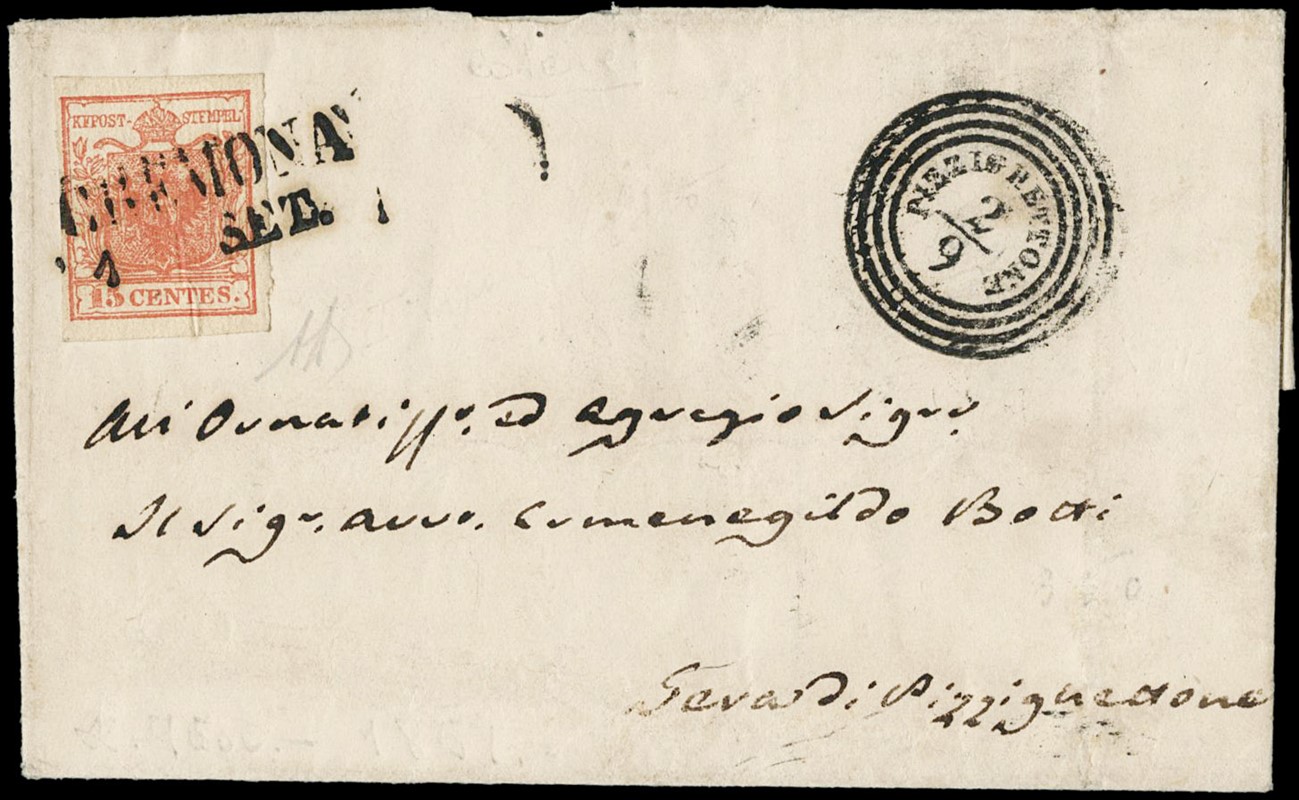 KK POST-STEMPEL
CREMONA
1 SET.
15 CENTES.
PIZZIGHETTONE
2/9
All Ornatiss.o ed Egregio Sig.r
Il Sig.r Avvo. Ermenegildo Botti
Gera di Pizzighettone